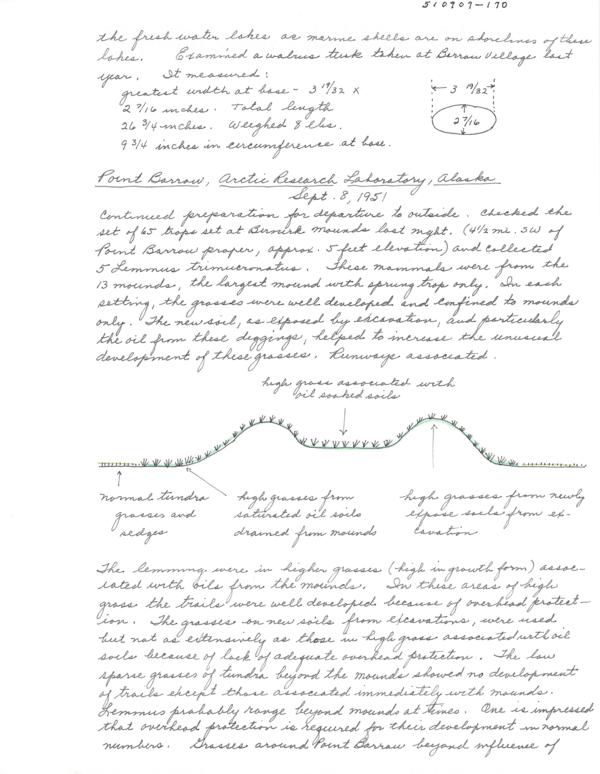 510909-170
the fresh water lakes as marine shells are on shorelines of these
lakes. Examined a walrus tusk taken at Barrow Village last
year. It measured:
greatest width at base - 3 19/32 x
2 7/16 inches. Total length
26 3/4 inches. Weighed 8 lbs.
9 3/4 inches in circumference at base.
3 19/32
2 7/16
Point Barrow, Arctic Research Laboratory, Alaska
Sept. 8, 1951
Continued preparation for departure to outside. Checked the
set of 65 traps set at Birnirk mounds last night. (4 1/2 mi. SW of
Point Barrow proper, approx. 5 feet elevation) and collected
5 Lemmus trimucronatus. These mammals were from the
13 mounds, the largest mound with sprung trap only. In each
setting, the grasses were well developed and confined to mounds
only. The new soil, as exposed by excavation, and particularly
the oil from these diggings, helped to increase the unusual
development of these grasses. Runways associated.
high grass associated with
oil soaked soils
normal tundra
grasses and
sedges
high grasses from
saturated oil soils
drained from mounds
high grasses from newly
expose soils from ex-
cavation
The lemming were in higher grasses (high in growth form) assoc-
iated with oils from the mounds. In these areas of high
grass the trails were well developed because of overhead protect-
ion. The grasses on new soils from excavations, were used
but not as extensively as those in high grass associated with oil
soils because of lack of adequate overhead protection. The low
sparse grasses of tundra beyond the mounds showed no development
of trails except those associated immediately with mounds.
Lemmus probably range beyond mounds at times. One is impressed
that overhead protection is required for their development in normal
numbers. Grasses around Point Barrow beyond influence of